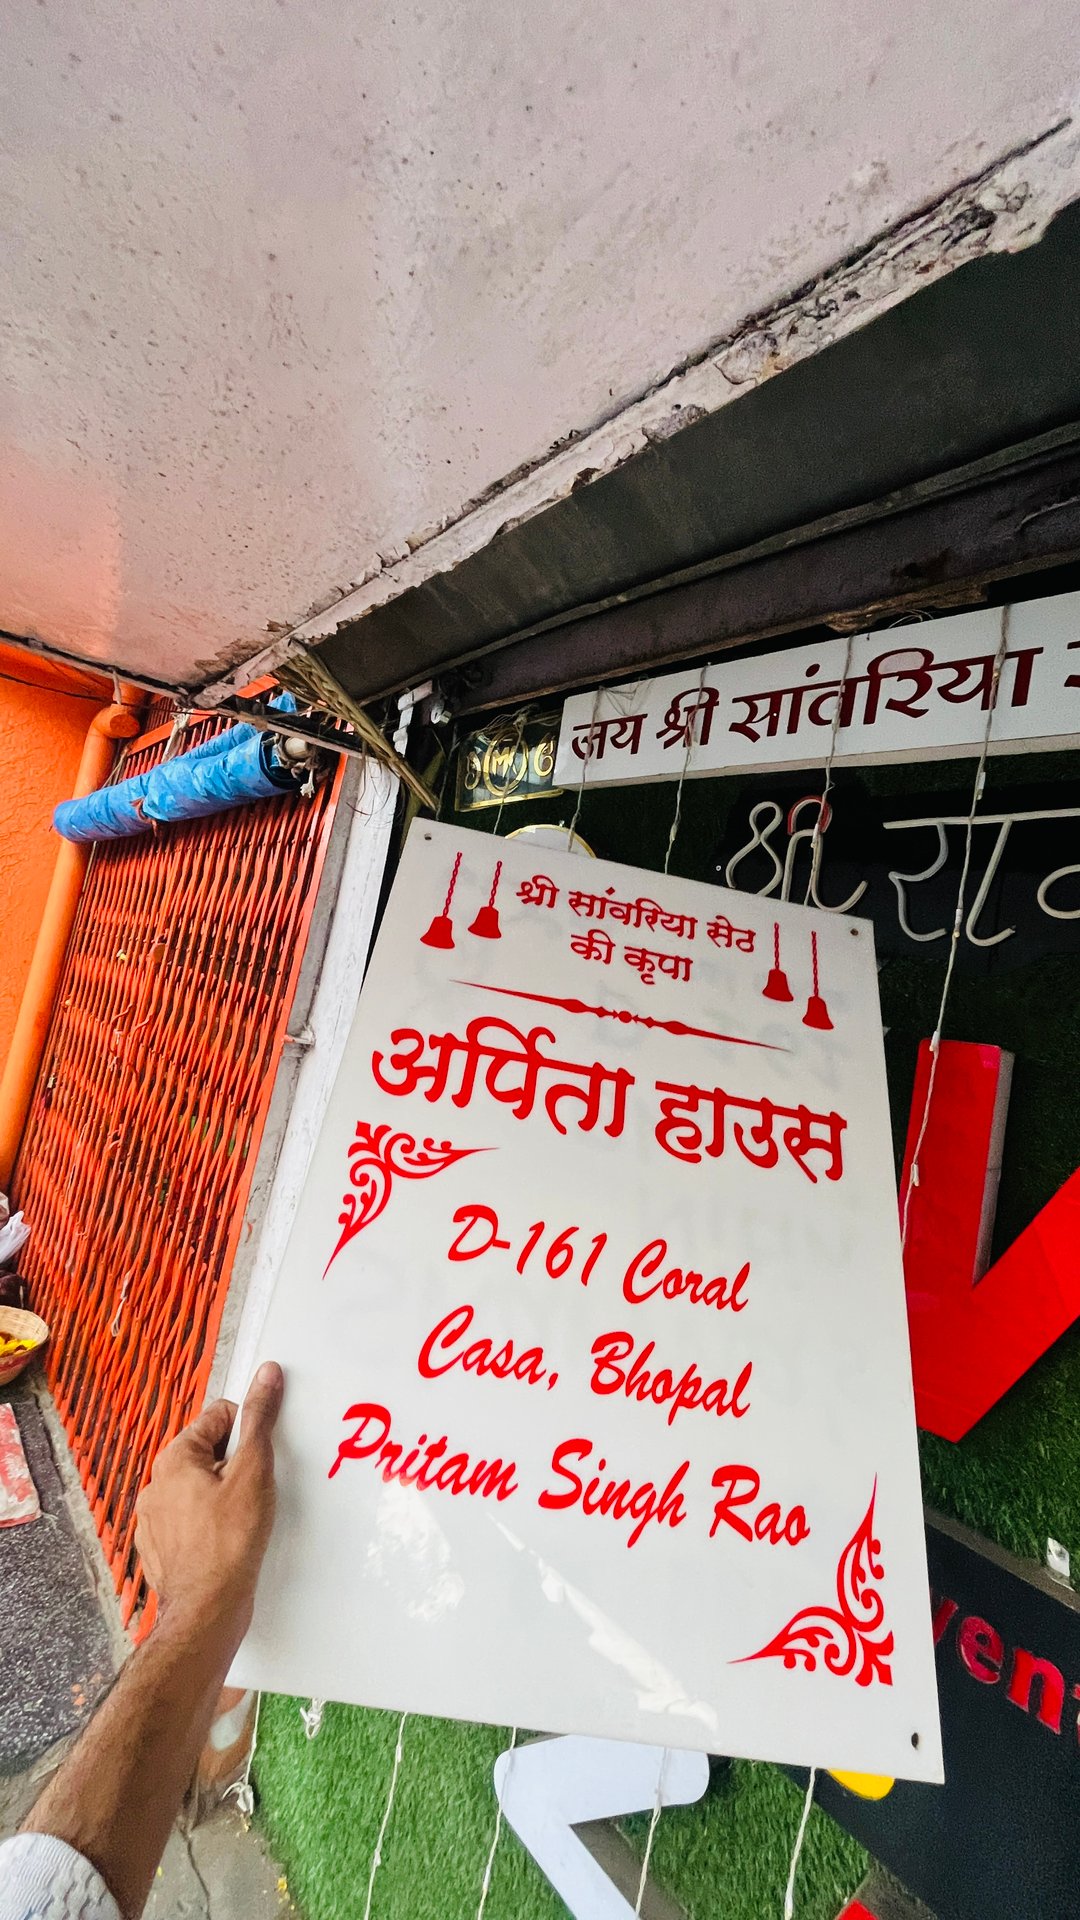 जय श्री सांवरिया
श्री
श्री सांवरिया सेठ
की कृपा
अर्पिता हाउस
D-161 Coral
Casa, Bhopal
Pritam Singh Rao